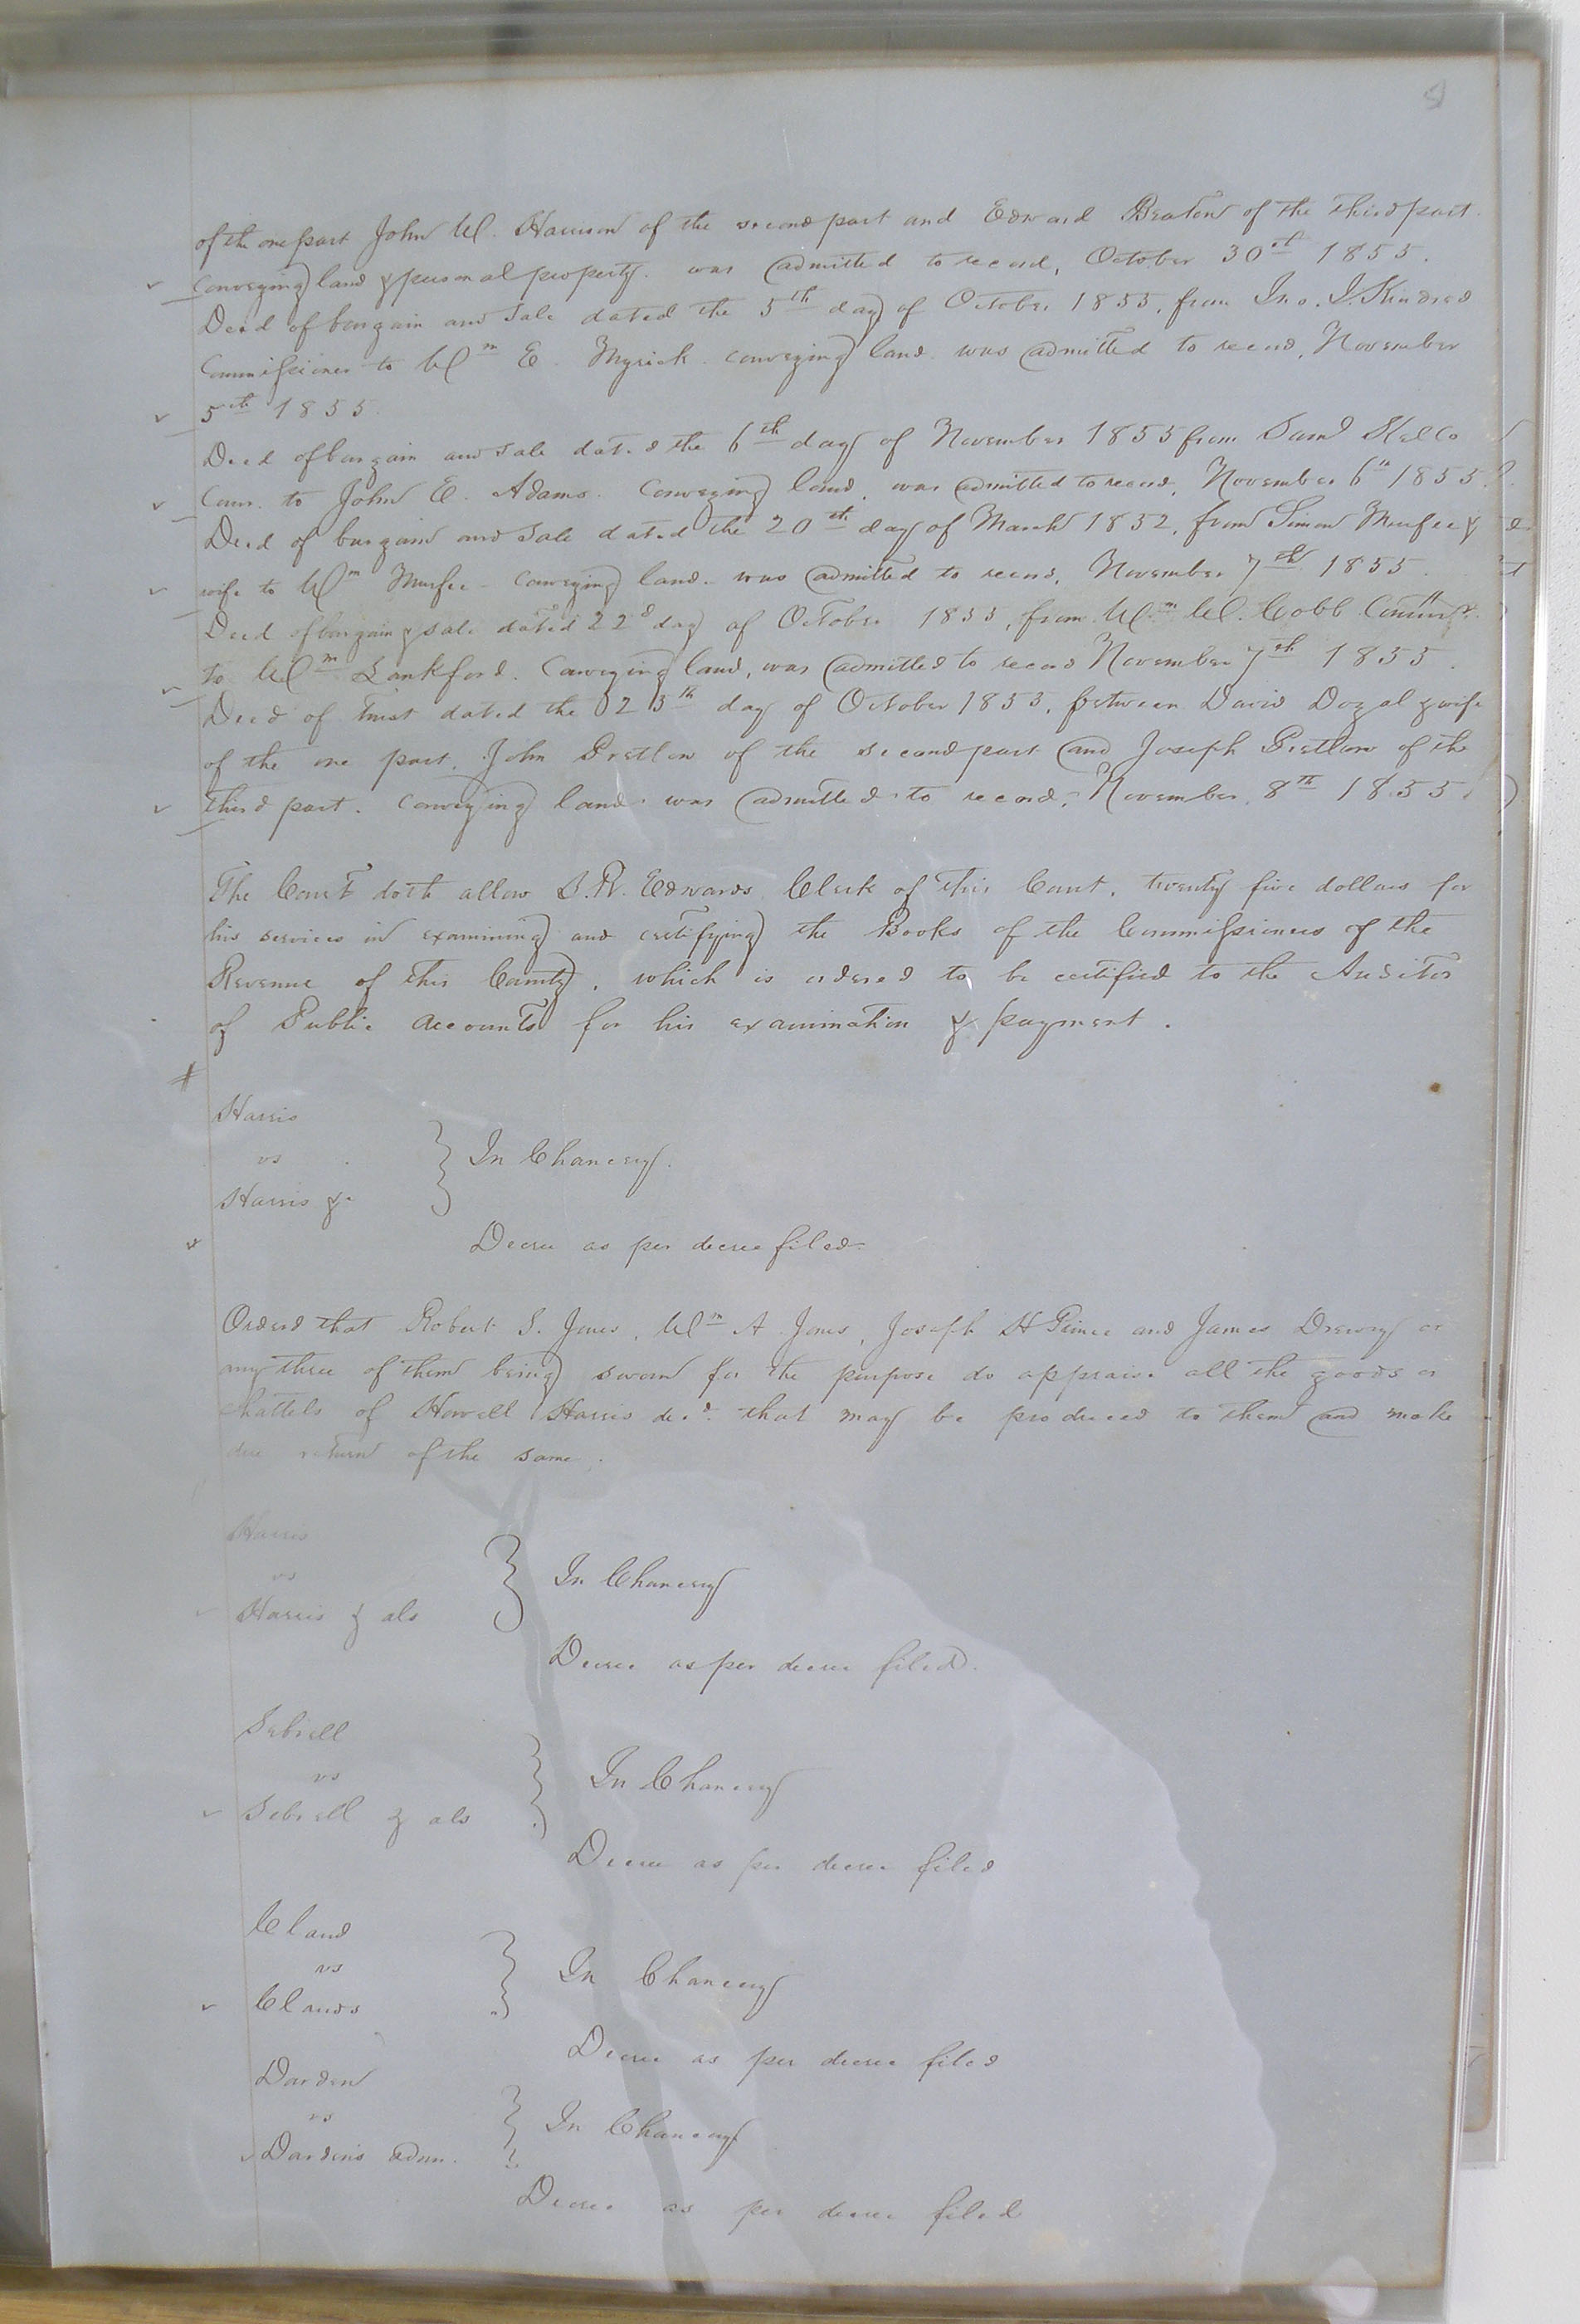 9
of the one part John W. Harrison of the second part and Edward Beaton of the third part.
conveying land & personal property. was admitted to record, October 30th 1855.
Deed of bargain and Sale dated the 5th day of October 1855, from Jno. J. Kindred
Commissioner to Wm E. Myrick conveying land was admitted to record, November
5th 1855.
Deed of bargain and sale dated the 6th day of November 1855 from Saml Kello
Com. to John E. Adams. Conveying land, was admitted to record, November 6th 1855.
Deed of bargain and Sale dated the 20th day of March 1852, from Simon Murfee &
wife to Wm Murfee - Conveying land. was admitted to record, November 7th 1855.
Deed of bargain & sale dated 22d day of October 1855, from Wm W. Cobb
to Wm Lankford. Conveying land, was admitted to record November 7th 1855.
Deed of trust dated the 25th day of October 1855, between David Doyal & wife
of the one part, John Pretlow of the second part and Joseph Pretlow of the
third part. Conveying land. was admitted to record, November 8th 1855.
The Court doth allow L. R. Edwards Clerk of this Court, twenty five dollars for
his services in examining and certifying the Books of the Commissioners of the
Revenue of this County, which is ordered to be certified to the Auditor
of Public Accounts for his examination & payment.
Harris
vs
In Chancery.
Harris &c
Decree as per decree filed.
Ordered that Robert S. Jones, Wm A Jones, Joseph H Prince and James Drewry or
any three of them being sworn for the purpose do appraise all the goods or
chattels of Howell Harris decd. that may be produced to them and make
due return of the same.
Harris
vs
In Chancery
Harris & als
Decree as per decree filed.
Sebrell
vs
In Chancery
Sebrell & als
Decree as per decree filed
Claud
vs
In Chancery
Clauds
Decree as per decree filed
Darden
vs
In Chancery
Darden's Adm.
Decree as per decree filed